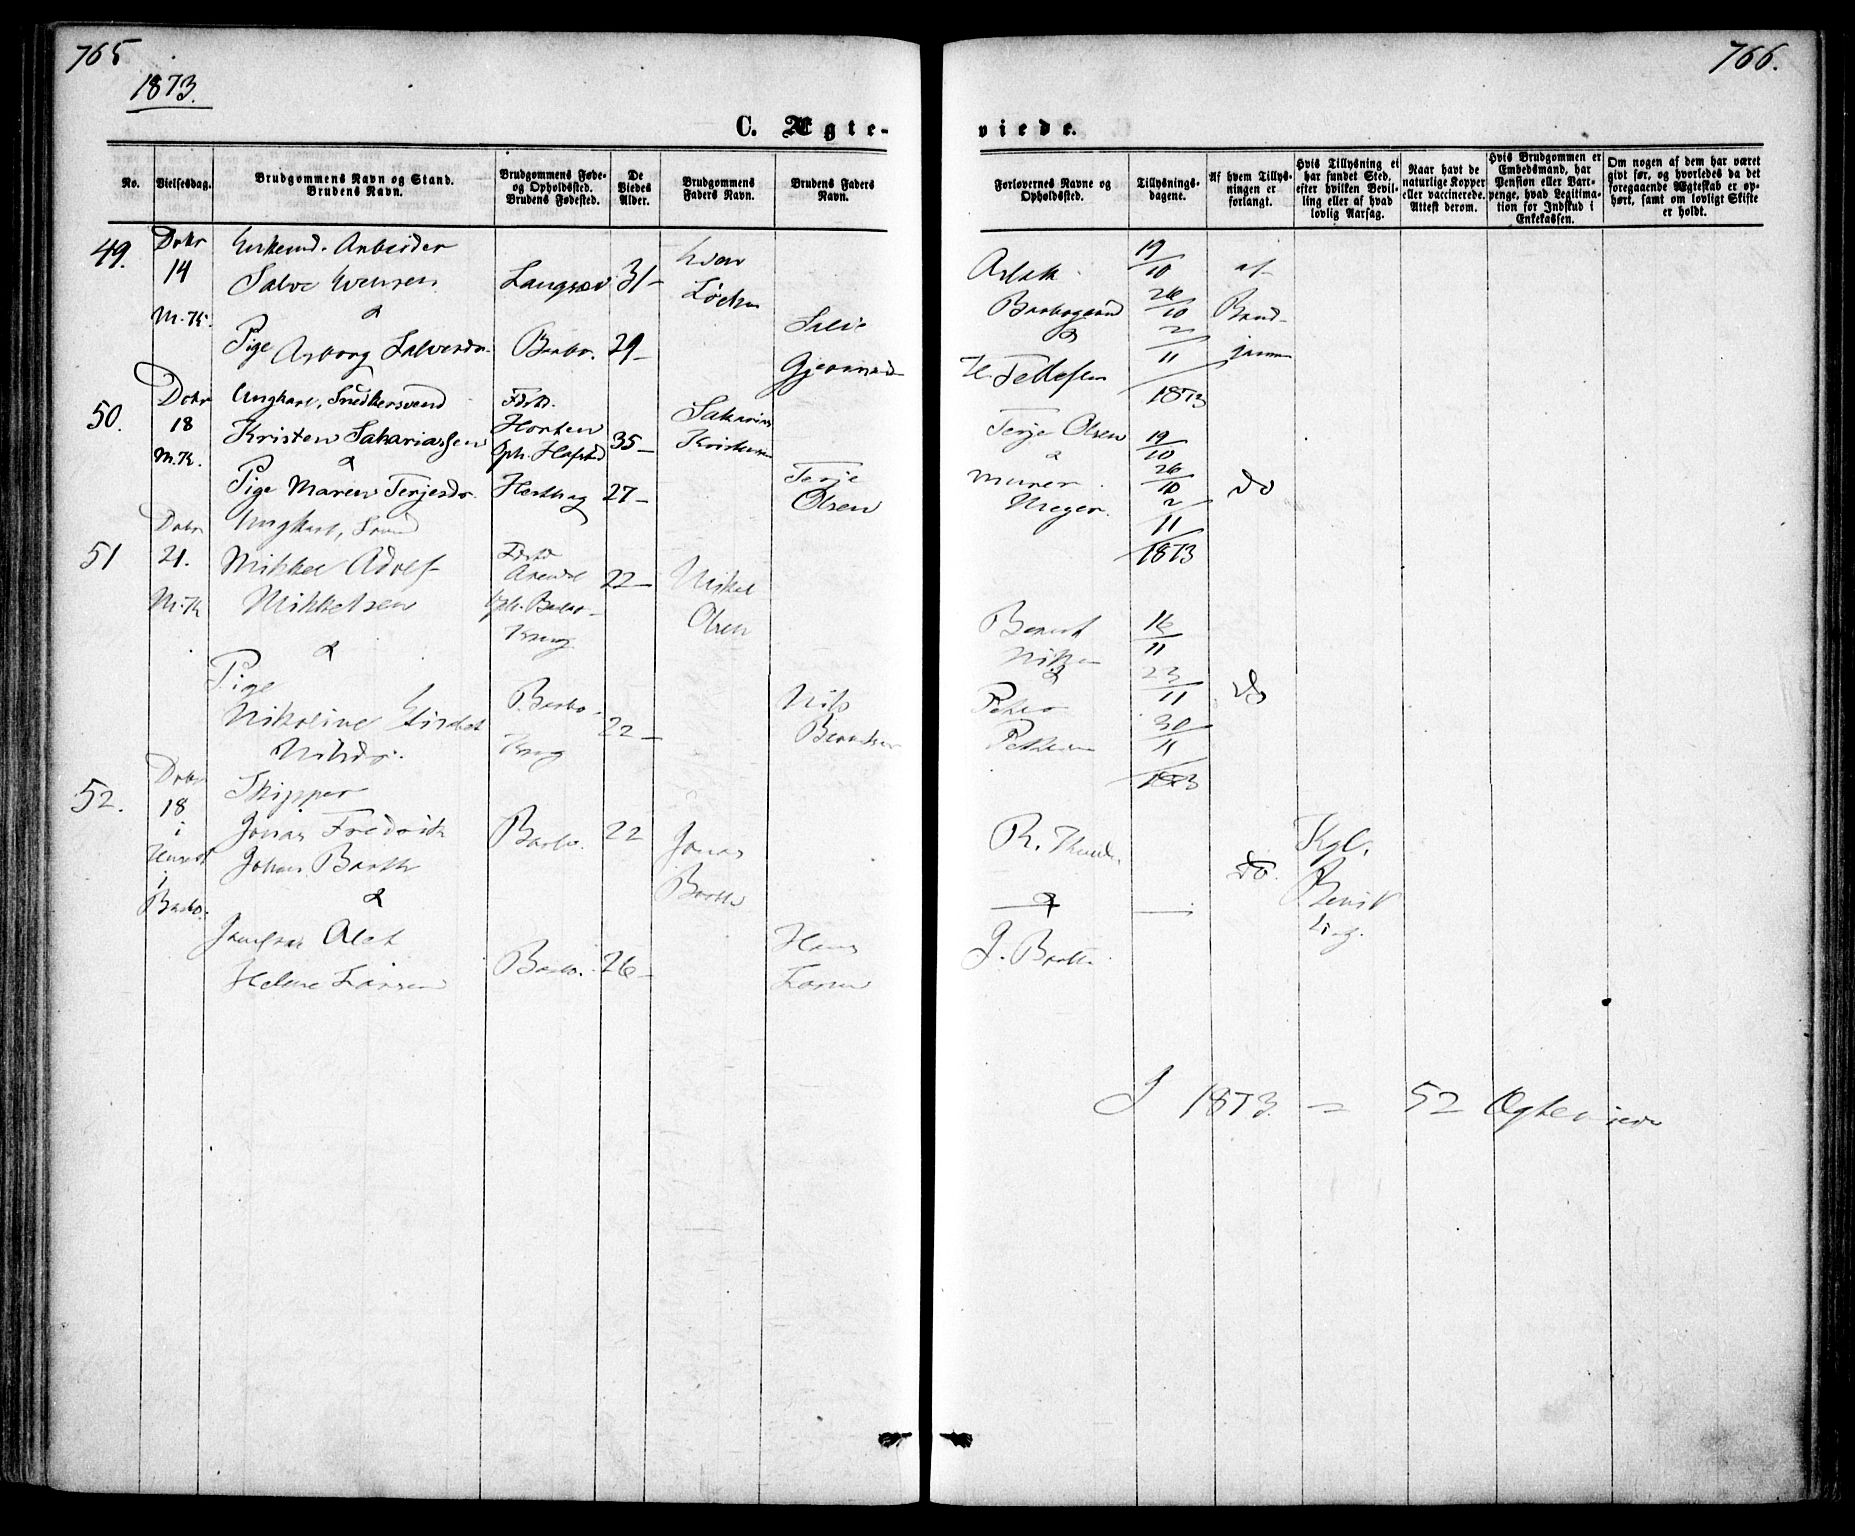 765
1873.
C. Ægte-
No.
Vielsesdag.
Brudgommens Navn og Stand.
Brudens Navn.
Brudgommens Føde-
og Opholdssted.
Brudens Fødested.
De
Viedes
Alder.
Brudgommens
Faders Navn.
Brudens Faders
Navn.
49.
Dcbr
14
M.K.
Arbeider
Salve Evensen
&
Pige Asborg Salvesdr.
Langsæv
Barbo.
31-
29-
Even
50.
Dcbr
18
M.K.
Ungkarl, Snedkersvend
Kristen Sakariassen
&
Pige Maren Terjesdr.
Fdested
Horten
Oph.
35-
27-
Sakarias
Kristensen
Terje
Olsen
51
Dcbr
21.
M.K
Ungkarl,
Mikkel Adolf
Mikkelsen
&
Pige
Nikoline
Nilsdr.
Fdested
Arendal
Oph. Barbo-
Barbo.
22-
22-
Mikkel
Olsen
Nils
Berntsen
52.
Dcbr
18
i
i
Barbo.
Skipper
Jonas Fredrik
Johan Barth
&
Jomfru Alet
Helene Larsen
Barbo.
Barbo.
22
26-
Jonas
Barth
Hans
Larsen
766.
viede.
Forlovernes Navne og
Opholdssted.
Tillysnings-
dagene.
Af hvem Tillys-
ningen er
forlangt.
Hvis Tillysning ei
har fundet Sted,
efter hvilken Bevil-
ling eller af hvad
lovlig Aarsag.
Naar havt de
naturlige Kopper
eller vaccinerede.
Attest derom.
Hvis Brudgommen er
Embedsmand, har
Pension eller Vart-
penge, hvad Legitima-
tion for Indskud i
Enkekassen.
Om nogen af dem har været
givt før, og hvorledes da det
foregaaende Ægteskab er op-
hørt, samt om lovligt Skifte
er holdt.
&
Tellefsen
19/10
26/10
2/11
1873
af
Brud-
Terje Olsen
&
19/10
26/10
2/11
1873
do
Bernt
Nilsen
&
Peder
16/11
23/11
30/11
1873
do
&
J. Barth
do.
Kgl.
Bevil
ling.
I 1873 = 52 Ægteviede